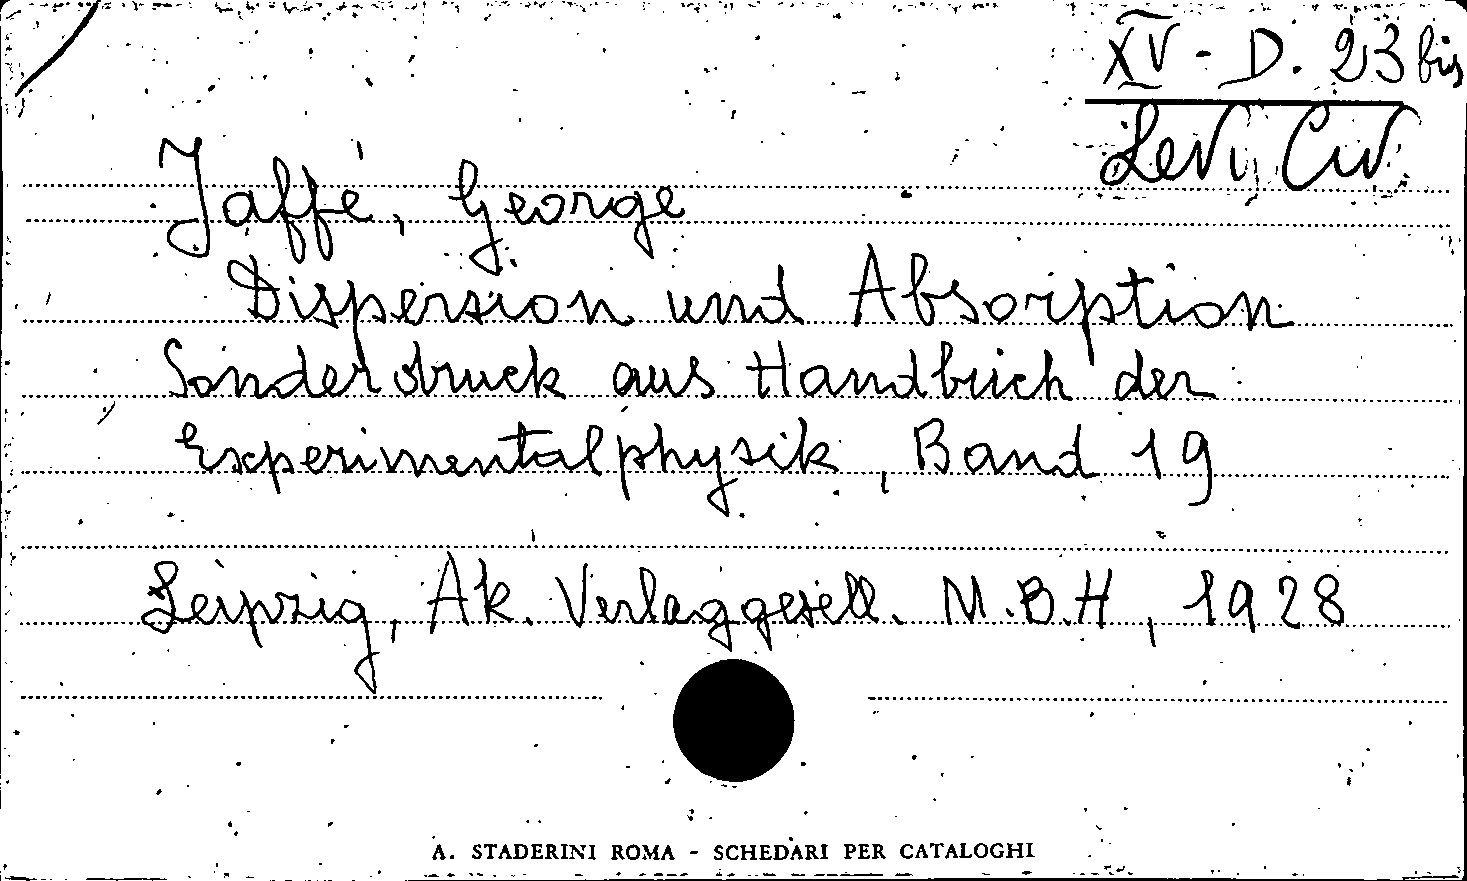 XV - D. 23 bis
Levi Civ.
Jaffé, George
Dispersion und Absorption
Sonderdruck aus Handbuch der
Experimentalphysik, Band 19
Leipzig, Ak. Verlaggesell. M.B.H, 1928
A. STADERINI ROMA - SCHEDARI PER CATALOGHI